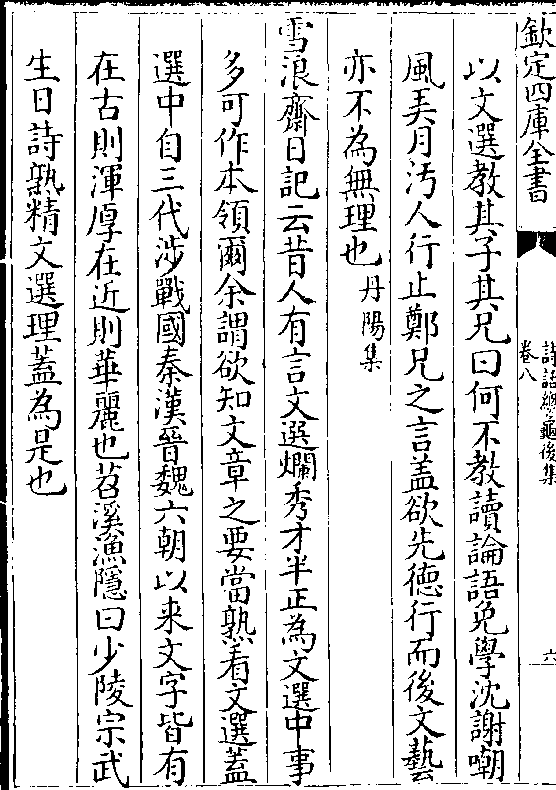 欽定四庫全書
詩話總龜後集
卷八
六
以文選教其子其兄曰何不教讀論語免學沈謝嘲
風美月汚人行止鄭兄之言蓋欲先德行而後文藝
亦不為無理也丹陽集
雪浪齋日記云昔人有言文選爛秀才半正為文選中事
多可作本領爾余謂欲知文章之要當熟看文選蓋
選中自三代涉戰國秦漢晉魏六朝以来文字皆有
在古則渾厚在近則華麗也苕溪漁隱曰少陵宗武
生日詩熟精文選理蓋為是也